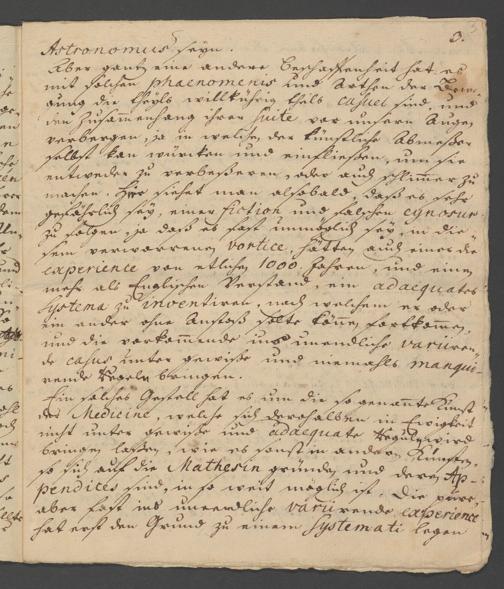 3.
Astronomus seyn.
Aber gantz eine andere Beschaffenheit hat es
mit solchen phaenomenis und Arthen der
die theyls willkührig theils casuel sind, und
den Zusammenhang ihrer suite vor unsern Augen
verbergen, ja in welche der künstliche Abmeßer
selbst kan würcken und einfließen, um sie
entweder zu verbeßeren, oder auch schlimmer zu
machen. Hier siehet man alsobald, daß es sehr
gefährlich sey, einer fiction und falschen cynosur
zu folgen, ja daß es fast unmöglich sey, in die-
sem verworrenen vortice, hätten auch einer die
experience von etlichen 1000 Jahren, und einen
mehr als Englischen Verstand, ein adaequates
systema zu inventiren, nach welchem er oder
ein ander ohne Anstoß solte können fortkommen,
und die vorkommende ins unendliche variiren-
de casus unter gewiße und niemahls manqui-
rende Regeln bringen.
Ein solches Gestell hat es um die so genante Kunst
der Medicine, welche sich derohalben in Ewigkeit
nicht unter gewiße und adaequate Reguln wird
bringen laßen, wie es sonst in andern Künsten,
so sich auf die Mathesin gründen und deren Ap-
pendites sind, in so weit möglich ist. Die pure
aber fast ins unendliche variirende experience
hat erst den Grund zu einem Systemati legen